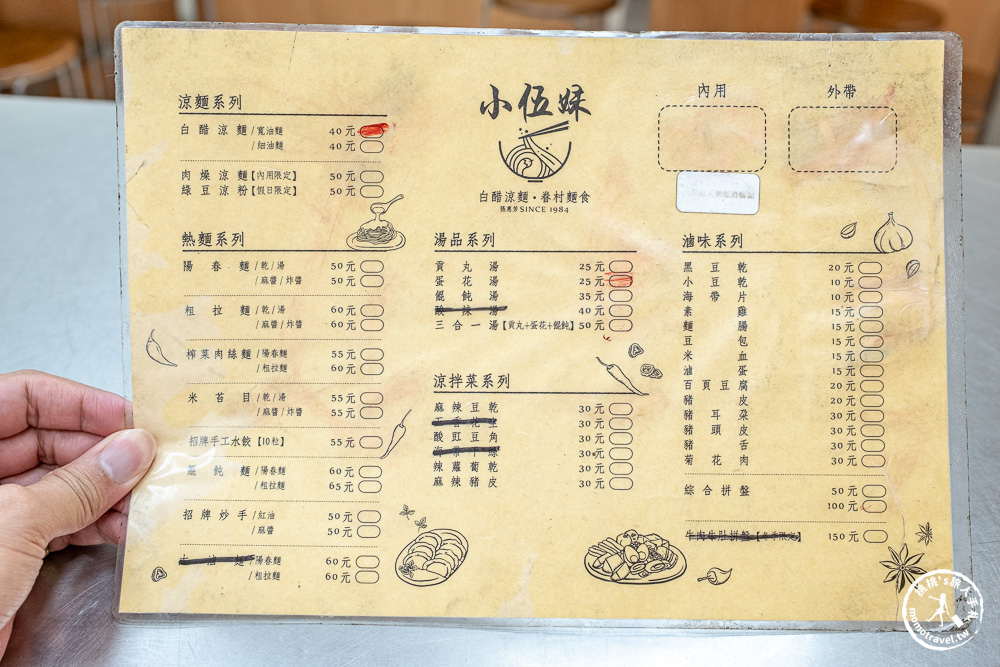 小伍妹
白醋涼麵・眷村麵食
SINCE 1984
內用
外帶
涼麵系列
白醋涼麵/寬油麵 40元
/細油麵 40元
肉燥涼麵【內用限定】 50元
綠豆涼粉【假日限定】 50元
熱麵系列
陽春麵/乾/湯 50元
/麻醬/炸醬 50元
粗拉麵/乾/湯 60元
/麻醬/炸醬 60元
榨菜肉絲麵/陽春麵 55元
/粗拉麵 60元
米苔目/乾/湯 55元
/麻醬/炸醬 55元
招牌手工水餃【10粒】 55元
餛飩麵/陽春麵 60元
/粗拉麵 65元
招牌炒手/紅油 50元
/麻醬 50元
油麵/陽春麵 60元
/粗拉麵 60元
湯品系列
貢丸湯 25元
蛋花湯 25元
餛飩湯 35元
酸辣湯 40元
三合一湯【貢丸+蛋花+餛飩】 50元
涼拌菜系列
麻辣豆乾 30元
五香花生 30元
酸豇豆角 30元
海帶干絲 30元
辣蘿蔔乾 30元
麻辣豬皮 30元
滷味系列
黑豆乾 20元
小豆乾 10元
海帶片 10元
素雞 15元
麵腸 15元
豆包 15元
米血 15元
滷蛋 15元
百頁豆腐 20元
豬皮 20元
豬耳朶 30元
豬頭皮 30元
豬舌 30元
菊花肉 30元
綜合拼盤 50元
100元
牛肉牛肚拼盤 150元
桃桃's旅人手札
momotravel.tw